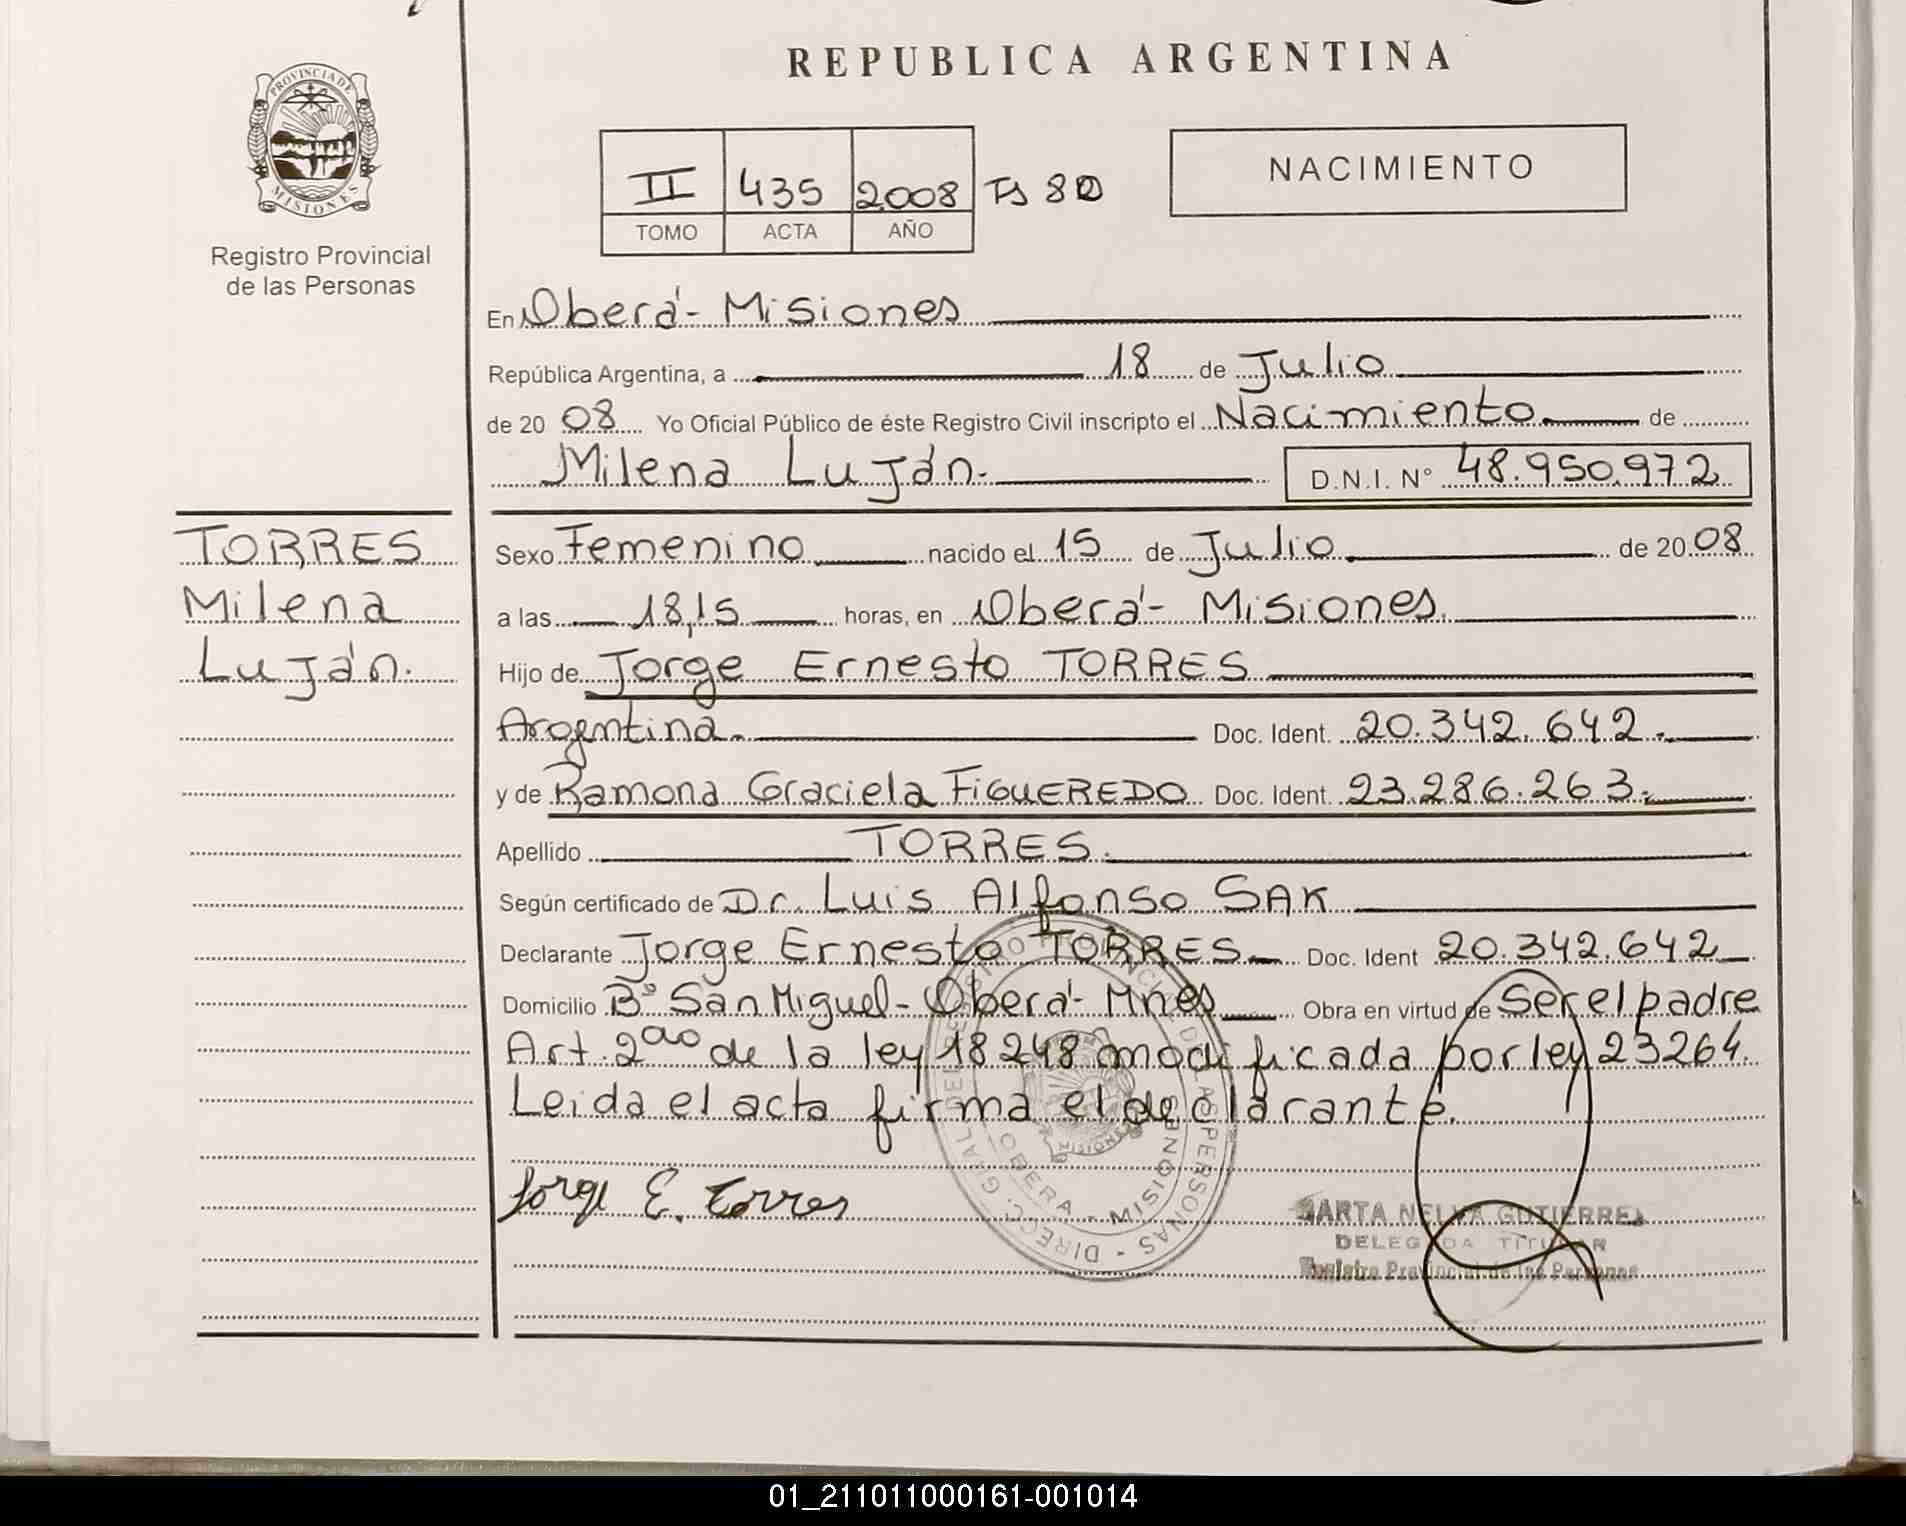 REPUBLICA ARGENTINA
PROVINCIA DE
MISIONES
Registro Provincial
de las Personas
II 435 2008
TOMO ACTA AÑO
NACIMIENTO
En Oberá - Misiones
República Argentina, a 18 de Julio
de 2008 Yo Oficial Público de éste Registro Civil inscripto el Nacimiento de
Milena Luján. D.N.I. N° 48.950.972
TORRES
Milena
Luján.
Sexo Femenino nacido el 15 de Julio de 2008
a las 18,15 horas, en Oberá - Misiones.
Hijo de Jorge Ernesto TORRES
Argentina. Doc. Ident. 20.342.642.
y de Ramona Graciela FIGUEREDO Doc. Ident. 23.286.263.
Apellido TORRES.
Según certificado de Dr. Luis Alfonso SAK
Declarante Jorge Ernesto TORRES Doc. Ident 20.342.642
Domicilio B° San Miguel - Oberá - Mnes Obra en virtud de Ser el padre
Art. 2do de la ley 18248 modificada por ley 23264.
Leida el acta firma el declarante.
Jorge E. Torres
DIRECC. GRAL. DEL REGISTRO PROVINCIAL DE LAS PERSONAS
MISIONES
OBERA - MISIONES
MARTA NELVA GUTIERREZ
DELEGADA TITULAR
Registro Provincial de las Personas
01_211011000161-001014